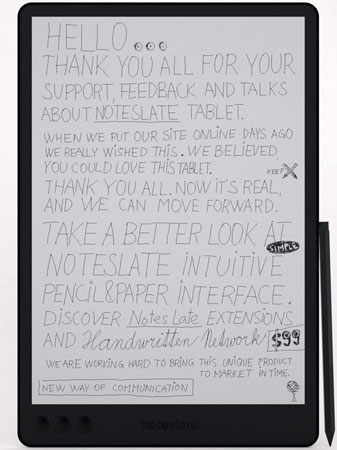 HELLO...
THANK YOU ALL FOR YOUR
SUPPORT, FEEDBACK AND TALKS
ABOUT NOTESLATE TABLET.
WHEN WE PUT OUR SITE ONLINE DAYS AGO
WE REALLY WISHED THIS. WE BELIEVED,
YOU COULD LOVE THIS TABLET.
KEEP
THANK YOU ALL. NOW IT'S REAL,
AND WE CAN MOVE FORWARD.
TAKE A BETTER LOOK AT
SIMPLE
NOTESLATE INTUITIVE
PENCIL&PAPER INTERFACE.
DISCOVER NotesLate EXTENSIONS
AND Handwritten Network $99
WE ARE WORKING HARD TO BRING THIS UNIQUE PRODUCT
TO MARKET IN TIME.
NEW WAY OF COMMUNICATION
noteslate